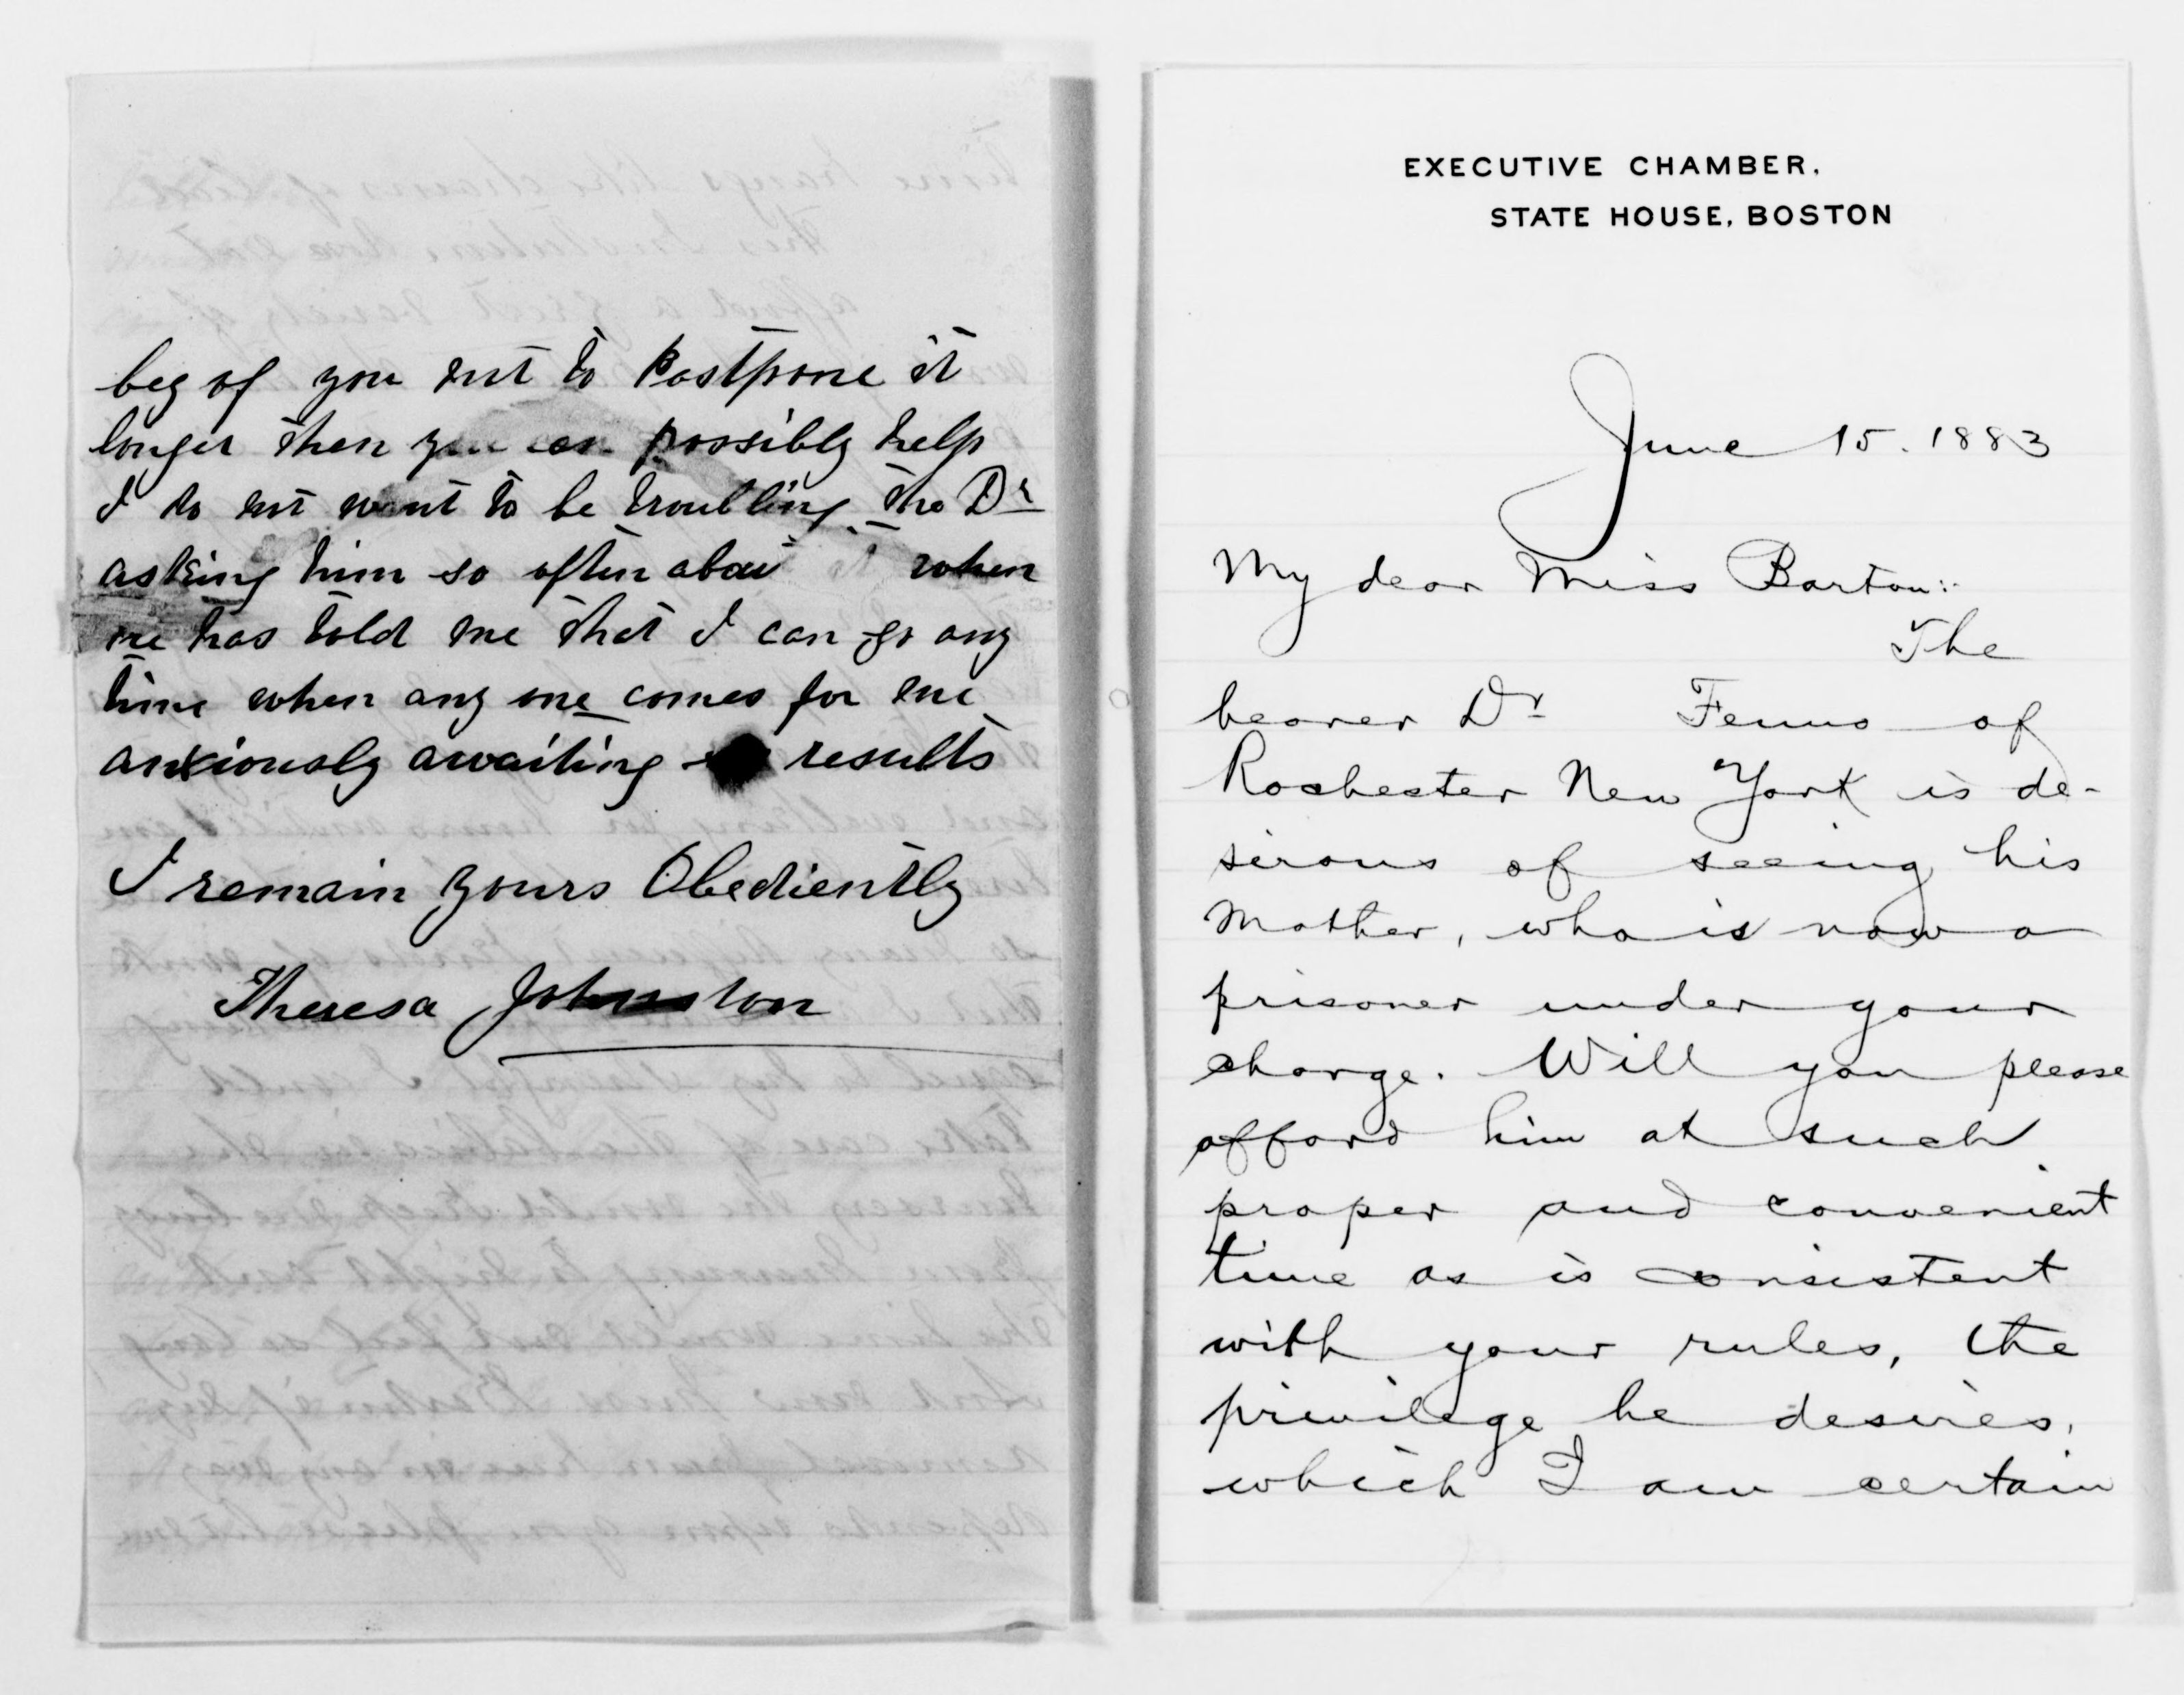 beg of you not to Postpone it
longer then you can possibly help
I do not want to be troubling the Dr
asking him so often about it when
he has told me that I can go any
time when any one comes for me
anxiously awaiting results
I remain yours Obediently
Theresa Johnston
EXECUTIVE CHAMBER,
STATE HOUSE, BOSTON
June 15. 1883
My dear Miss Barton:-
The
bearer Dr Fenno of
Rochester New York is de-
sirous of seeing his
Mother, who is now a
prisoner under your
charge. Will you please
afford him at such
proper and convenient
time as is consistent
with your rules, the
privilege he desires,
which I am certain